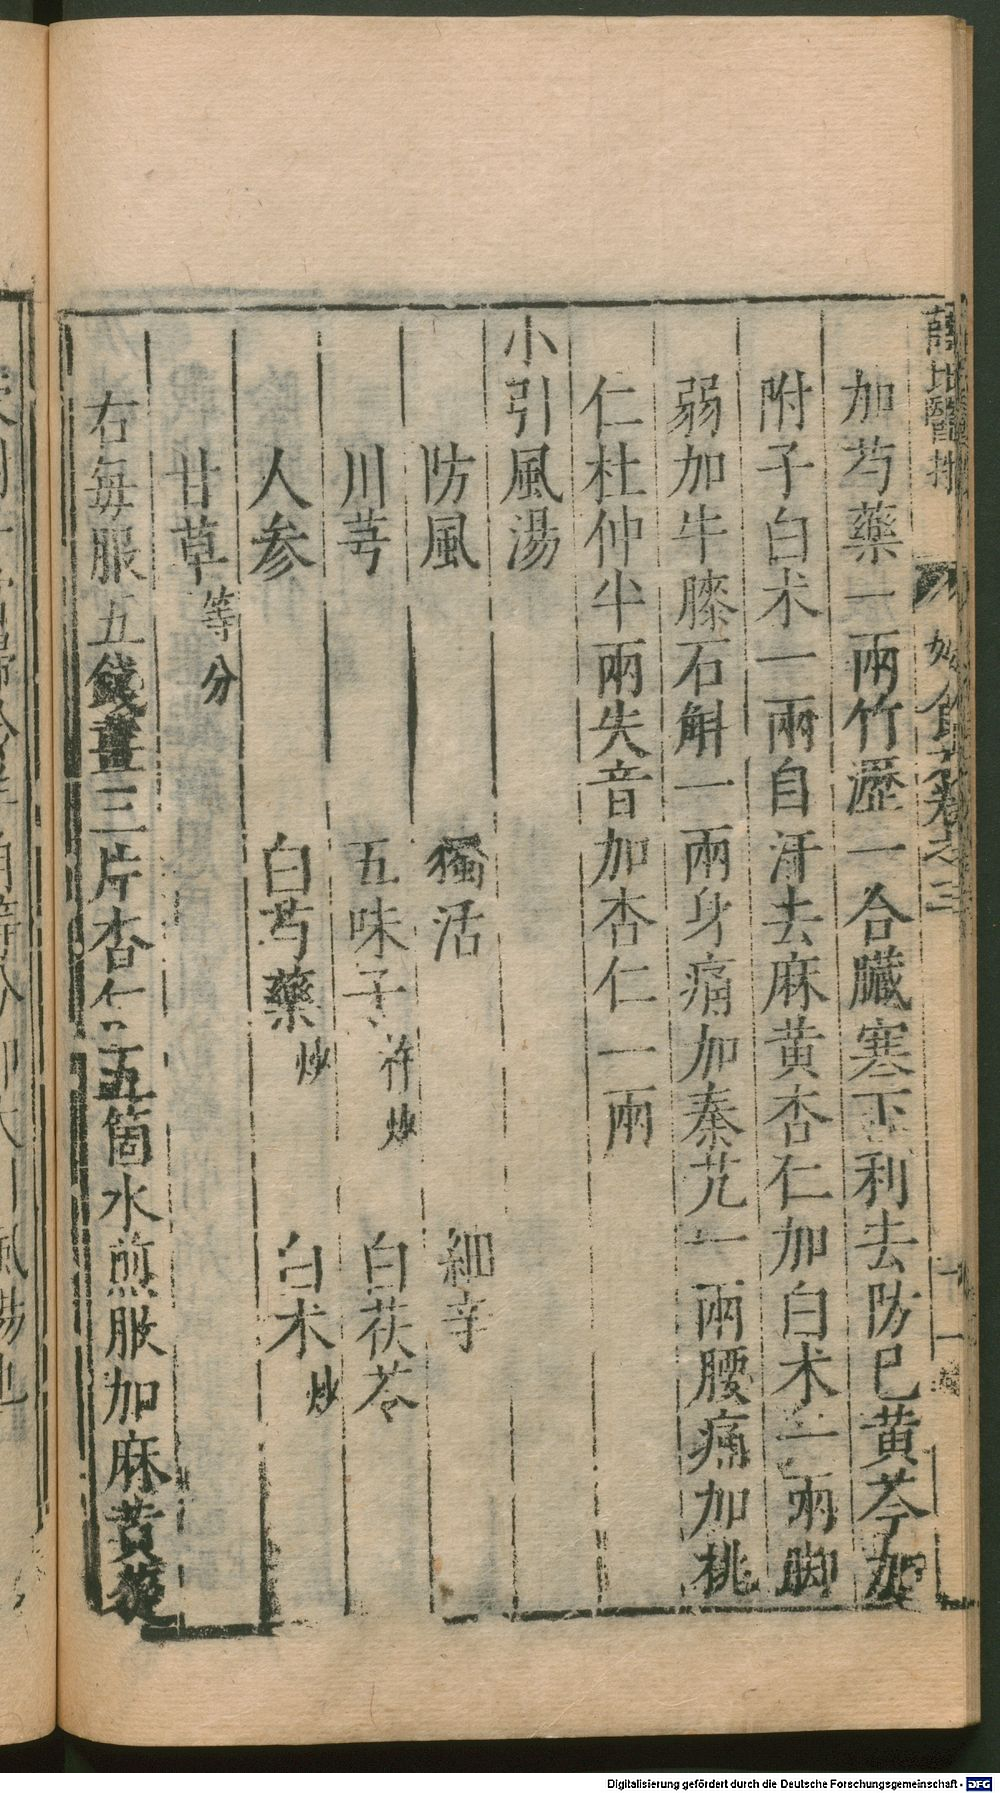 加芍藥一兩竹瀝一合臟寒下利去防已黄芩加
附子白术一兩自汗去麻黄杏仁加白术一兩脚
弱加牛膝石斛一兩身痛加秦艽一兩腰痛加桃
仁杜仲半兩失音加杏仁一兩
小引風湯
防風 獨活 細辛
川芎 五味子杵炒 白茯苓
人参 白芍藥炒 白术炒
甘草等分
右每服五錢薑三片杏仁五箇水煎服加麻黄旋
Digitalisierung gefördert durch die Deutsche Forschungsgemeinschaft - DFG